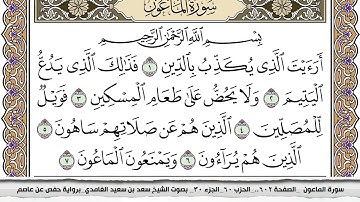 سُورَةُ الْمَاعُونِ
بِسْمِ اللَّهِ الرَّحْمَٰنِ الرَّحِيمِ
أَرَءَيْتَ الَّذِي يُكَذِّبُ بِالدِّينِ ١ فَذَٰلِكَ الَّذِي يَدُعُّ
الْيَتِيمَ ٢ وَلَا يَحُضُّ عَلَىٰ طَعَامِ الْمِسْكِينِ ٣ فَوَيْلٌ
لِّلْمُصَلِّينَ ٤ الَّذِينَ هُمْ عَن صَلَاتِهِمْ سَاهُونَ ٥
الَّذِينَ هُمْ يُرَآءُونَ ٦ وَيَمْنَعُونَ الْمَاعُونَ ٧
سورة الماعون _ الصفحة ٦٠٢_ الحزب ٦٠_ الجزء ٣٠_ بصوت الشيخ سعد بن سعيد الغامدي _برواية حفص عن عاصم